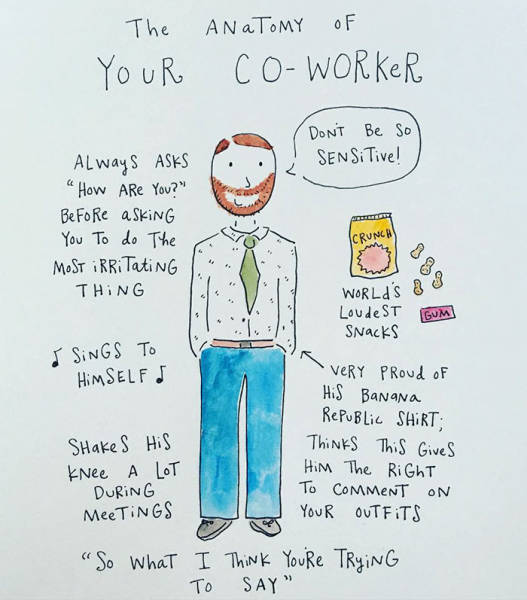 The ANaTOMY OF
YOUR CO-WORKeR
DON'T Be SO
SENSiTiVE!
ALWayS ASKS
"HOW ARe YOU?"
BeFORe aSKING
YOU TO dO The
MOST iRRiTaTiNG
THiNG
CRUNCH
WORLD'S
LOUdeST
SNaCKS
GUM
♪ SiNGS TO
HiMSELF ♪
VeRY PROUd OF
HiS BaNaNa
RePUBLiC SHiRT;
THiNKS THiS GiVeS
HiM THe RiGHT
TO COMMeNT ON
YOUR OUTFiTS
SHaKeS HiS
KNee A LOT
DURiNG
MeeTiNGS
"SO WHaT I THiNK YOU'Re TRYiNG
TO SAY"